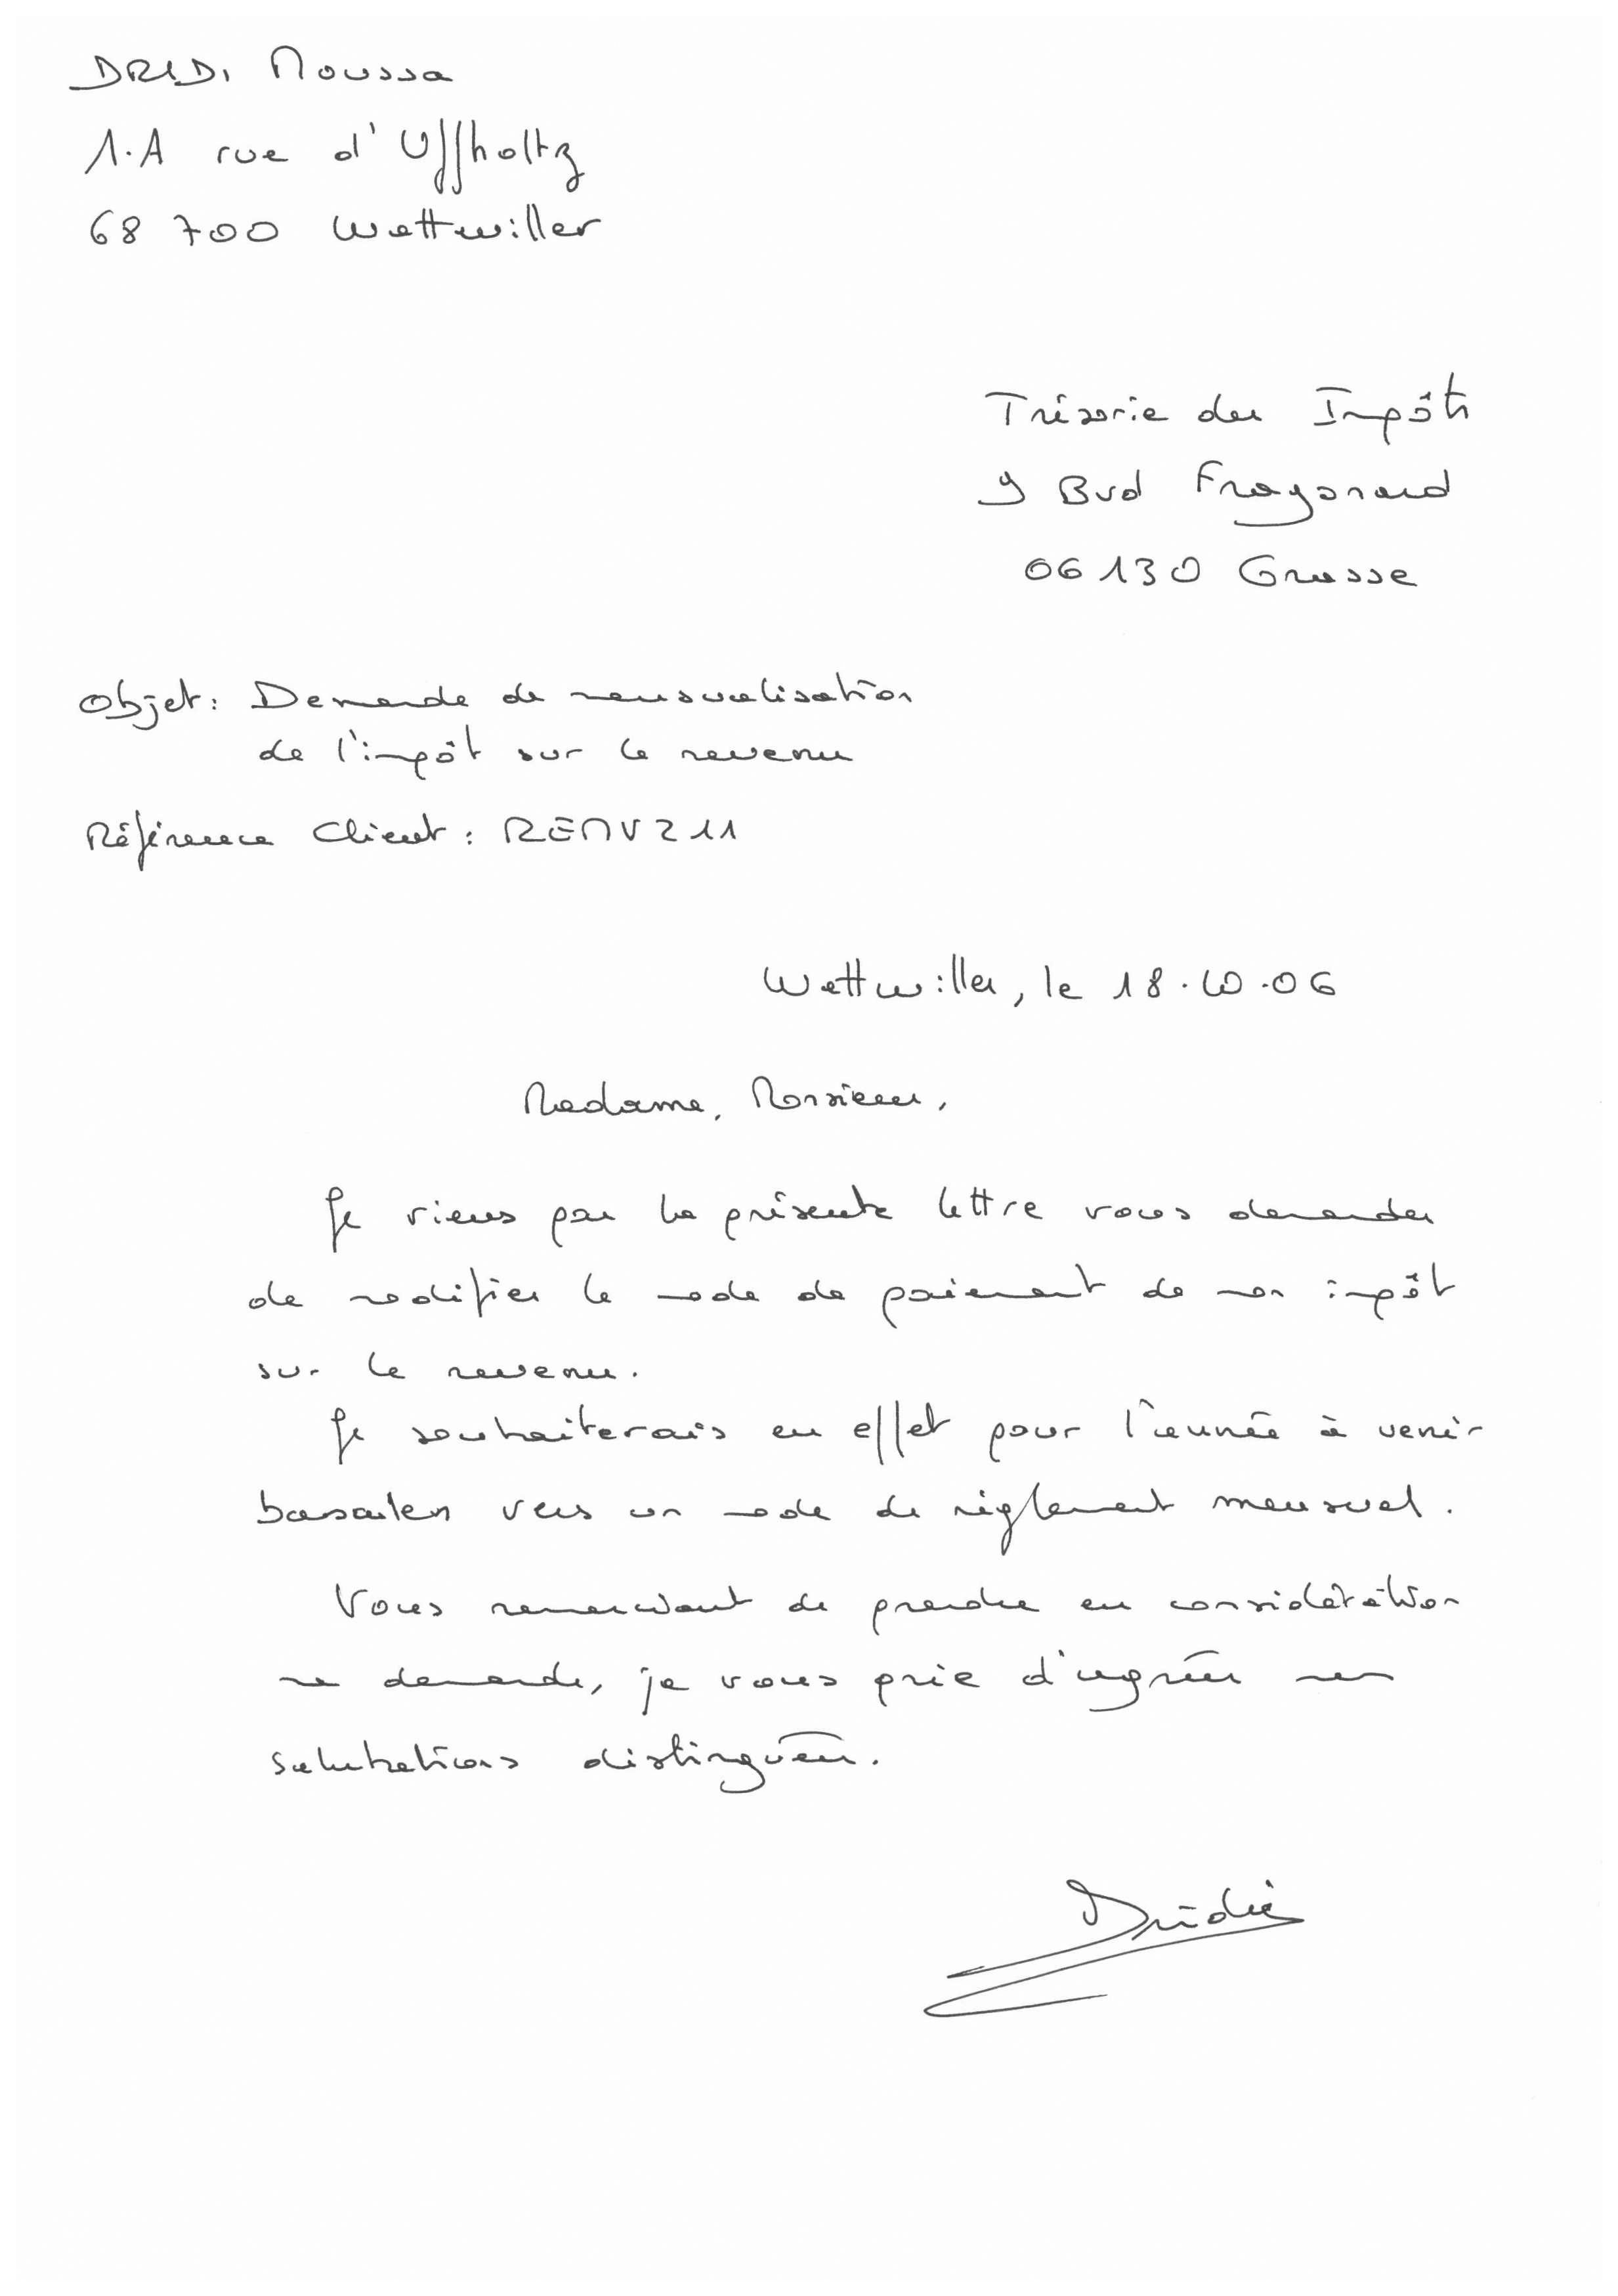 DRIDI Moussa
1.A rue d'Uffholtz
68 700 Wattwiller
Trésorie des Impôts
9 Bvd Fragonard
06130 Grasse
Objet: Demande de mensualisation
de l'impôt sur le revenu
Référence Client: REMV211
Wattwiller, le 18.10.06
Madame, Monsieur,
Je viens par la présente lettre vous demander
de modifier le mode de paiement de mon impôt
sur le revenu.
Je souhaiterais en effet pour l'année à venir
basculer vers un mode de règlement mensuel.
Vous remerciant de prendre en considération
ma demande, je vous prie d'agréer mes
salutations distinguées.
Dridi